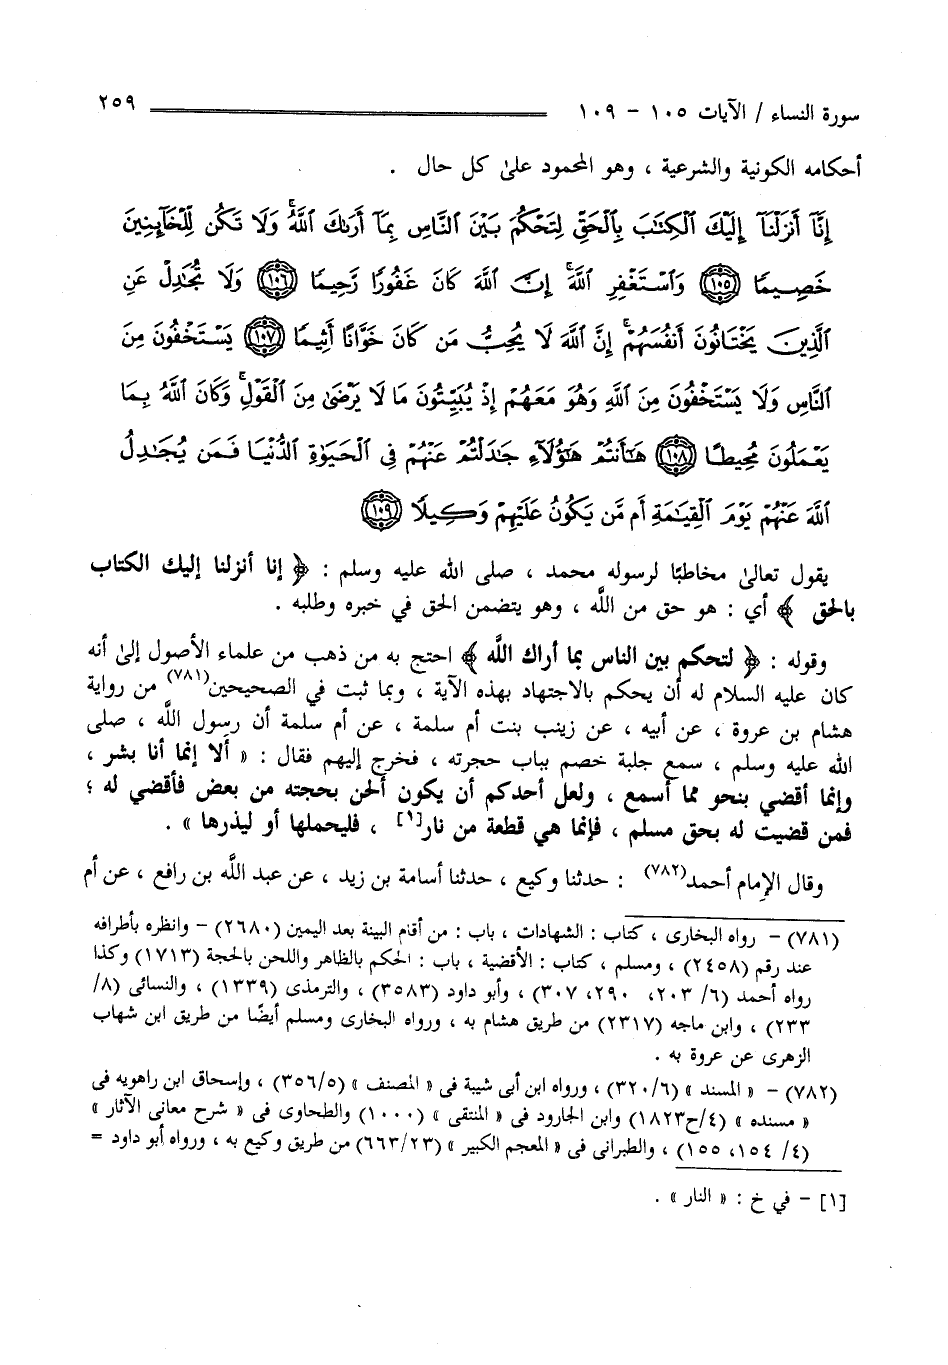 سورة النساء / الآيات ١٠٥ - ١٠٩ ٢٥٩
أحكامه الكونية والشرعية ، وهو المحمود علىٰ كل حال .
إِنَّآ أَنزَلْنَآ إِلَيْكَ ٱلْكِتَٰبَ بِٱلْحَقِّ لِتَحْكُمَ بَيْنَ ٱلنَّاسِ بِمَآ أَرَىٰكَ ٱللَّهُ ۚ وَلَا تَكُن لِّلْخَآئِنِينَ
خَصِيمًا ١٠٥ وَٱسْتَغْفِرِ ٱللَّهَ ۖ إِنَّ ٱللَّهَ كَانَ غَفُورًا رَّحِيمًا ١٠٦ وَلَا تُجَٰدِلْ عَنِ
ٱلَّذِينَ يَخْتَانُونَ أَنفُسَهُمْ ۚ إِنَّ ٱللَّهَ لَا يُحِبُّ مَن كَانَ خَوَّانًا أَثِيمًا ١٠٧ يَسْتَخْفُونَ مِنَ
ٱلنَّاسِ وَلَا يَسْتَخْفُونَ مِنَ ٱللَّهِ وَهُوَ مَعَهُمْ إِذْ يُبَيِّتُونَ مَا لَا يَرْضَىٰ مِنَ ٱلْقَوْلِ ۚ وَكَانَ ٱللَّهُ بِمَا
يَعْمَلُونَ مُحِيطًا ١٠٨ هَٰٓأَنتُمْ هَٰٓؤُلَآءِ جَٰدَلْتُمْ عَنْهُمْ فِى ٱلْحَيَوٰةِ ٱلدُّنْيَا فَمَن يُجَٰدِلُ
ٱللَّهَ عَنْهُمْ يَوْمَ ٱلْقِيَٰمَةِ أَم مَّن يَكُونُ عَلَيْهِمْ وَكِيلًا ١٠٩
يقول تعالىٰ مخاطبًا لرسوله محمد ، صلى الله عليه وسلم : ﴿ إنا أنزلنا إليك الكتاب
بالحق ﴾ أي : هو حق من اللَّه ، وهو يتضمن الحق في خبره وطلبه .
وقوله : ﴿ لتحكم بين الناس بما أراك اللَّه ﴾ احتج به من ذهب من علماء الأصول إلىٰ أنه
كان عليه السلام له أن يحكم بالاجتهاد بهذه الآية ، وبما ثبت في الصحيحين(٧٨١) من رواية
هشام بن عروة ، عن أبيه ، عن زينب بنت أم سلمة ، عن أم سلمة أن رسول اللَّه ، صلى
الله عليه وسلم ، سمع جلبة خصم بباب حجرته ، فخرج إليهم فقال : « ألا إنما أنا بشر ،
وإنما أقضي بنحو مما أسمع ، ولعل أحدكم أن يكون ألحن بحجته من بعض فأقضي له ؛
فمن قضيت له بحق مسلم ، فإنما هي قطعة من نار[١] ، فليحملها أو ليذرها » .
وقال الإمام أحمد(٧٨٢) : حدثنا وكيع ، حدثنا أسامة بن زيد ، عن عبد اللَّه بن رافع ، عن أم
(٧٨١) - رواه البخارى ، كتاب : الشهادات ، باب : من أقام البينة بعد اليمين (٢٦٨٠) - وانظره بأطرافه
عند رقم (٢٤٥٨) ، ومسلم ، كتاب : الأقضية ، باب : الحكم بالظاهر واللحن بالحجة (١٧١٣) وكذا
رواه أحمد (٦/ ٢٠٣، ٢٩٠، ٣٠٧) ، وأبو داود (٣٥٨٣) ، والترمذى (١٣٣٩) ، والنسائى (٨/
٢٣٣) ، وابن ماجه (٢٣١٧) من طريق هشام به ، ورواه البخارى ومسلم أيضًا من طريق ابن شهاب
الزهرى عن عروة به .
(٧٨٢) - « المسند » (٣٢٠/٦) ، ورواه ابن أبى شيبة فى « المصنف » (٣٥٦/٥) ، وإسحاق ابن راهويه فى
« مسنده » (٤/ح١٨٢٣) وابن الجارود فى « المنتقى » (١٠٠٠) والطحاوى فى « شرح معانى الآثار »
(٤/ ١٥٤، ١٥٥) ، والطبرانى فى « المعجم الكبير » (٦٦٣/٢٣) من طريق وكيع به ، ورواه أبو داود =
[١] - في خ : « النار » .